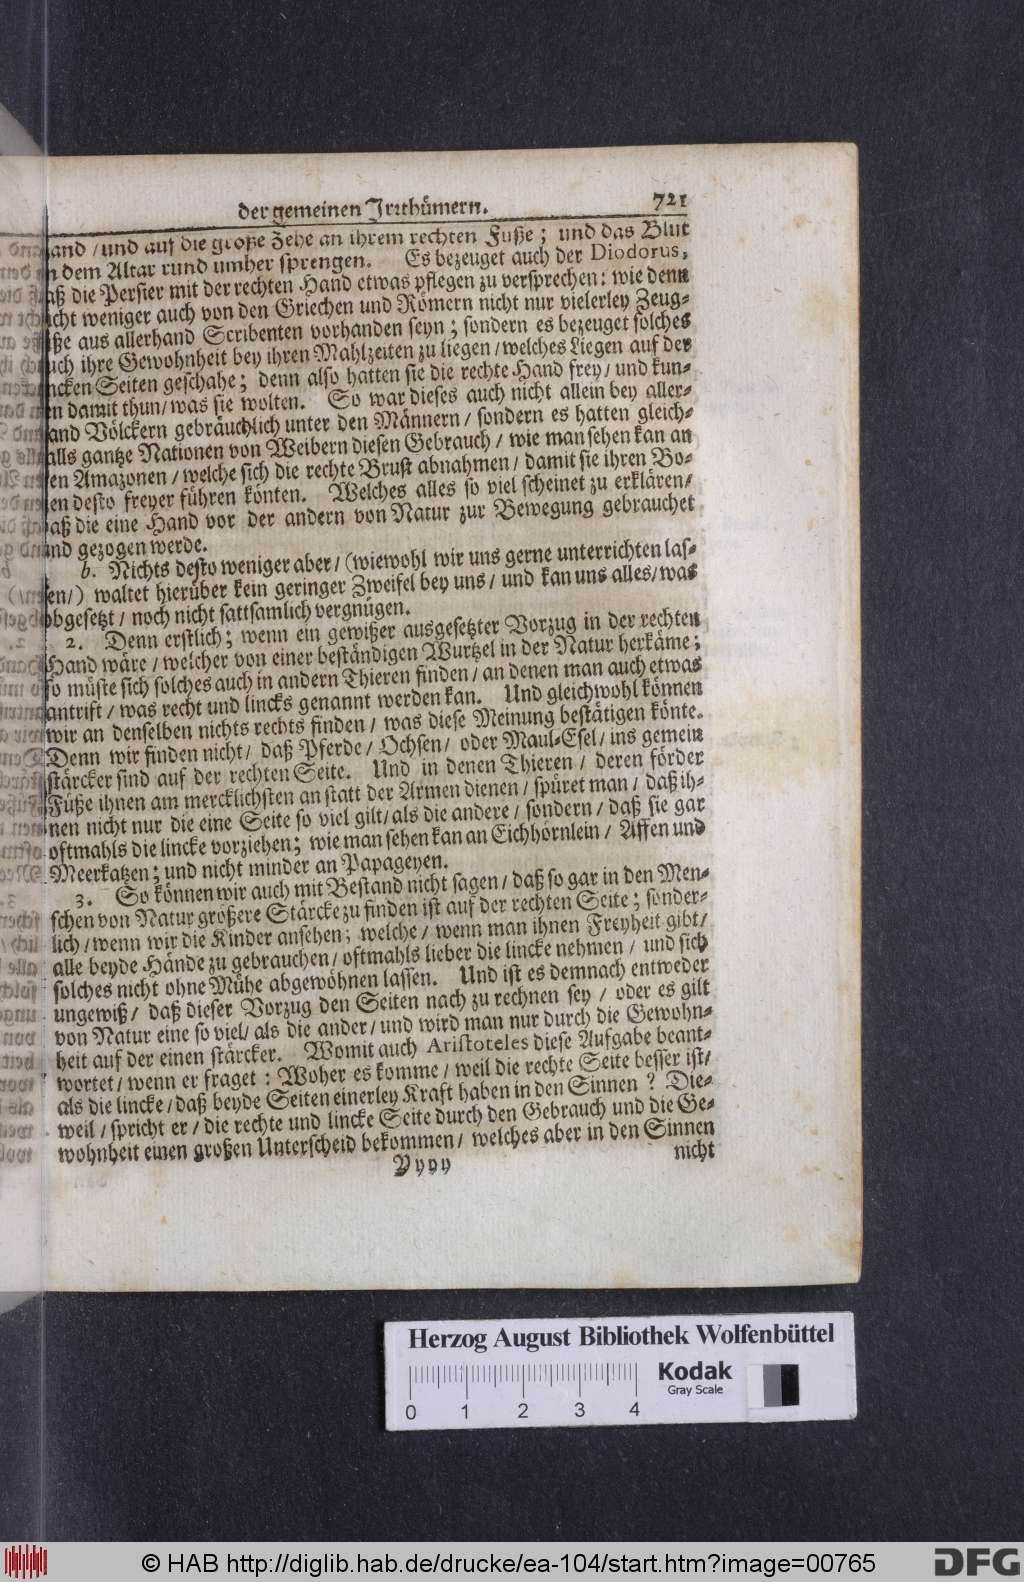 der gemeinen Jrrthümern. 721
and / und auf die große Zehe an ihrem rechten Fuße; und das Blut
n dem Altar rund umher sprengen. Es bezeuget auch der Diodorus,
aß die Persier mit der rechten Hand etwas pflegen zu versprechen: wie denn
icht weniger auch von den Griechen und Römern nicht nur vielerley Zeug-
ße aus allerhand Scribenten vorhanden seyn; sondern es bezeuget solches
uch ihre Gewohnheit bey ihren Mahlzeiten zu liegen / welches Liegen auf der
ncken Seiten geschahe; denn also hatten sie die rechte Hand frey / und kun-
en damit thun / was sie wolten. So war dieses auch nicht allein bey aller-
and Völckern gebräuchlich unter den Männern / sondern es hatten gleich-
alls gantze Nationen von Weibern diesen Gebrauch / wie man sehen kan an
en Amazonen / welche sich die rechte Brust abnahmen / damit sie ihren Bo-
en desto freyer führen könten. Welches alles so viel scheinet zu erklären /
aß die eine Hand vor der andern von Natur zur Bewegung gebrauchet
nd gezogen werde.
b. Nichts desto weniger aber / (wiewohl wir uns gerne unterrichten las-
en /) waltet hierüber kein geringer Zweifel bey uns / und kan uns alles / was
obgesetzt / noch nicht sattsamlich vergnügen.
2. Denn erstlich; wenn ein gewißer ausgesetzter Vorzug in der rechten
Hand wäre / welcher von einer beständigen Wurtzel in der Natur herkäme;
so müste sich solches auch in andern Thieren finden / an denen man auch etwas
antrift / was recht und lincks genannt werden kan. Und gleichwohl können
wir an denselben nichts rechts finden / was diese Meinung bestätigen könte.
Denn wir finden nicht / daß Pferde / Ochsen / oder Maul-Esel / ins gemein
stärcker sind auf der rechten Seite. Und in denen Thieren / deren förder
Füße ihnen am mercklichsten an statt der Armen dienen / spüret man / daß ih-
nen nicht nur die eine Seite so viel gilt / als die andere / sondern / daß sie gar
oftmahls die lincke vorziehen; wie man sehen kan an Eichhörnlein / Affen und
Meerkatzen; und nicht minder an Papageyen.
3. So können wir auch mit Bestand nicht sagen / daß so gar in den Men-
schen von Natur größere Stärcke zu finden ist auf der rechten Seite; sonder-
lich / wenn wir die Kinder ansehen; welche / wenn man ihnen Freyheit gibt /
alle beyde Hände zu gebrauchen / oftmahls lieber die lincke nehmen / und sich
solches nicht ohne Mühe abgewöhnen lassen. Und ist es demnach entweder
ungewiß / daß dieser Vorzug den Seiten nach zu rechnen sey / oder es gilt
von Natur eine so viel / als die ander / und wird man nur durch die Gewohn-
heit auf der einen stärcker. Womit auch Aristoteles diese Aufgabe beant-
wortet / wenn er fraget: Woher es komme / weil die rechte Seite besser ist /
als die lincke / daß beyde Seiten einerley Kraft haben in den Sinnen? Die-
weil / spricht er / die rechte und lincke Seite durch den Gebrauch und die Ge-
wohnheit einen großen Unterscheid bekommen / welches aber in den Sinnen
Yyyy nicht
Herzog August Bibliothek Wolfenbüttel
Kodak
Gray Scale
0 1 2 3 4
© HAB http://diglib.hab.de/drucke/ea-104/start.htm?image=00765
DFG